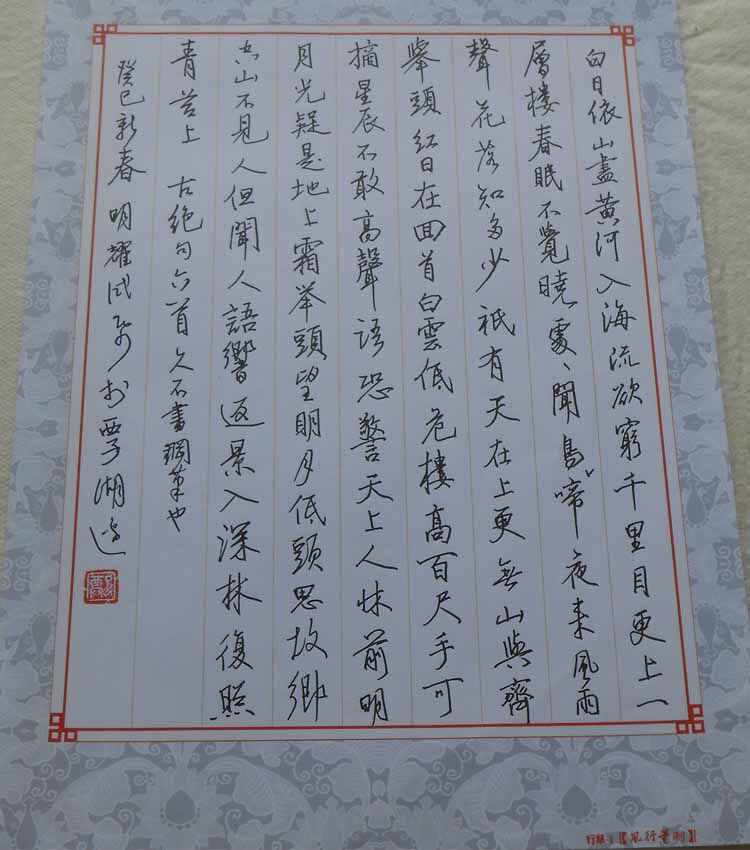 白日依山盡黃河入海流欲窮千里目更上一
層樓春眠不覺曉處、聞鳥啼夜来風雨
聲花落知多少祇有天在上更無山與齊
舉頭紅日在回首白雲低危樓高百尺手可
摘星辰不敢高聲語恐驚天上人牀前明
月光疑是地上霜举頭望明月低頭思故鄉
空山不見人但聞人語響返景入深林復照
青苔上 古絶句六首久不書鋼筆也
癸巳新春 明耀於西子湖邊